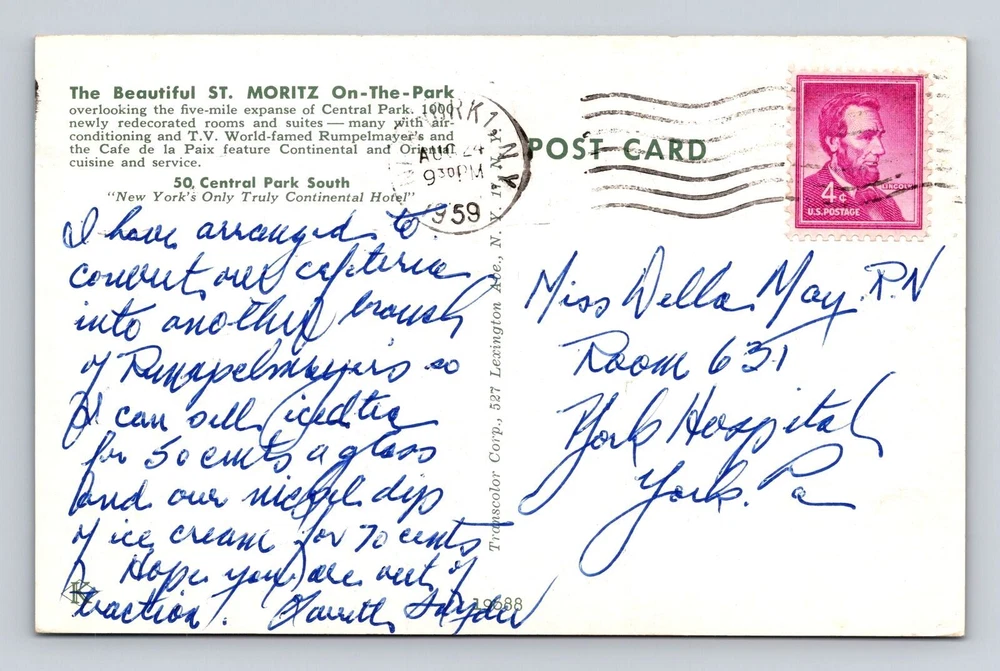 The Beautiful ST. MORITZ On-The-Park
overlooking the five-mile expanse of Central Park. 1000
newly redecorated rooms and suites — many with air-
conditioning and T.V. World-famed Rumpelmayer's and
the Cafe de la Paix feature Continental and Oriental
cuisine and service.
50 Central Park South
"New York's Only Truly Continental Hotel"
I have arranged to
convert our cafeteria
into another branch
of Rumpelmayer's so
I can sell iced tea
for 50 cents a glass
and our nickel dip
of ice cream for 70 cents
Hope you are out of
traction!
K
Transcolor Corp., 527 Lexington Ave., N. Y. 17, N. Y.
19688
N.Y.
AUG 24
930PM
1959
POST CARD
LINCOLN
4¢
U.S. POSTAGE
Miss Della May. R.N
Room 631
York Hospital
York. Pa